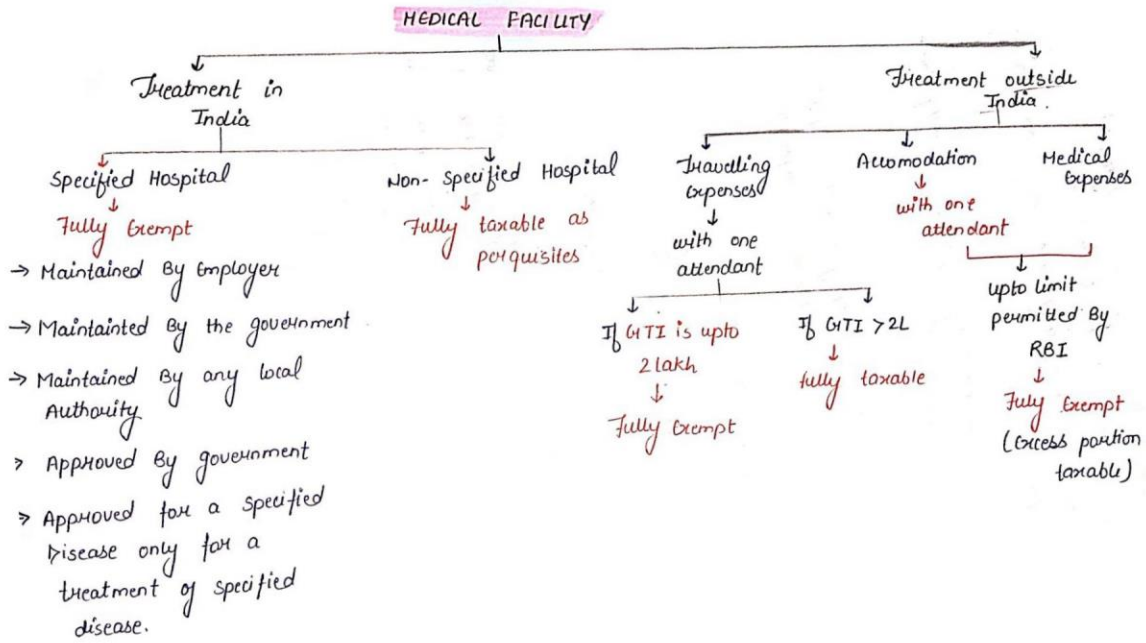 MEDICAL FACILITY
Treatment in
India
Treatment outside
India.
Specified Hospital
Fully Exempt
→ Maintained By Employer
→ Maintainted By the government
→ Maintained By any local
Authority
> Approved By government
> Approved for a specified
Disease only for a
treatment of specified
disease.
Non-specified Hospital
Fully taxable as
perquisites
Travelling
Expenses
with one
attendant
If GTI is upto
2 lakh
Fully Exempt
If GTI > 2L
fully taxable
Accomodation
with one
attendant
Medical
Expenses
upto limit
permitted By
RBI
Fuly Exempt
(Excess portion
taxable)